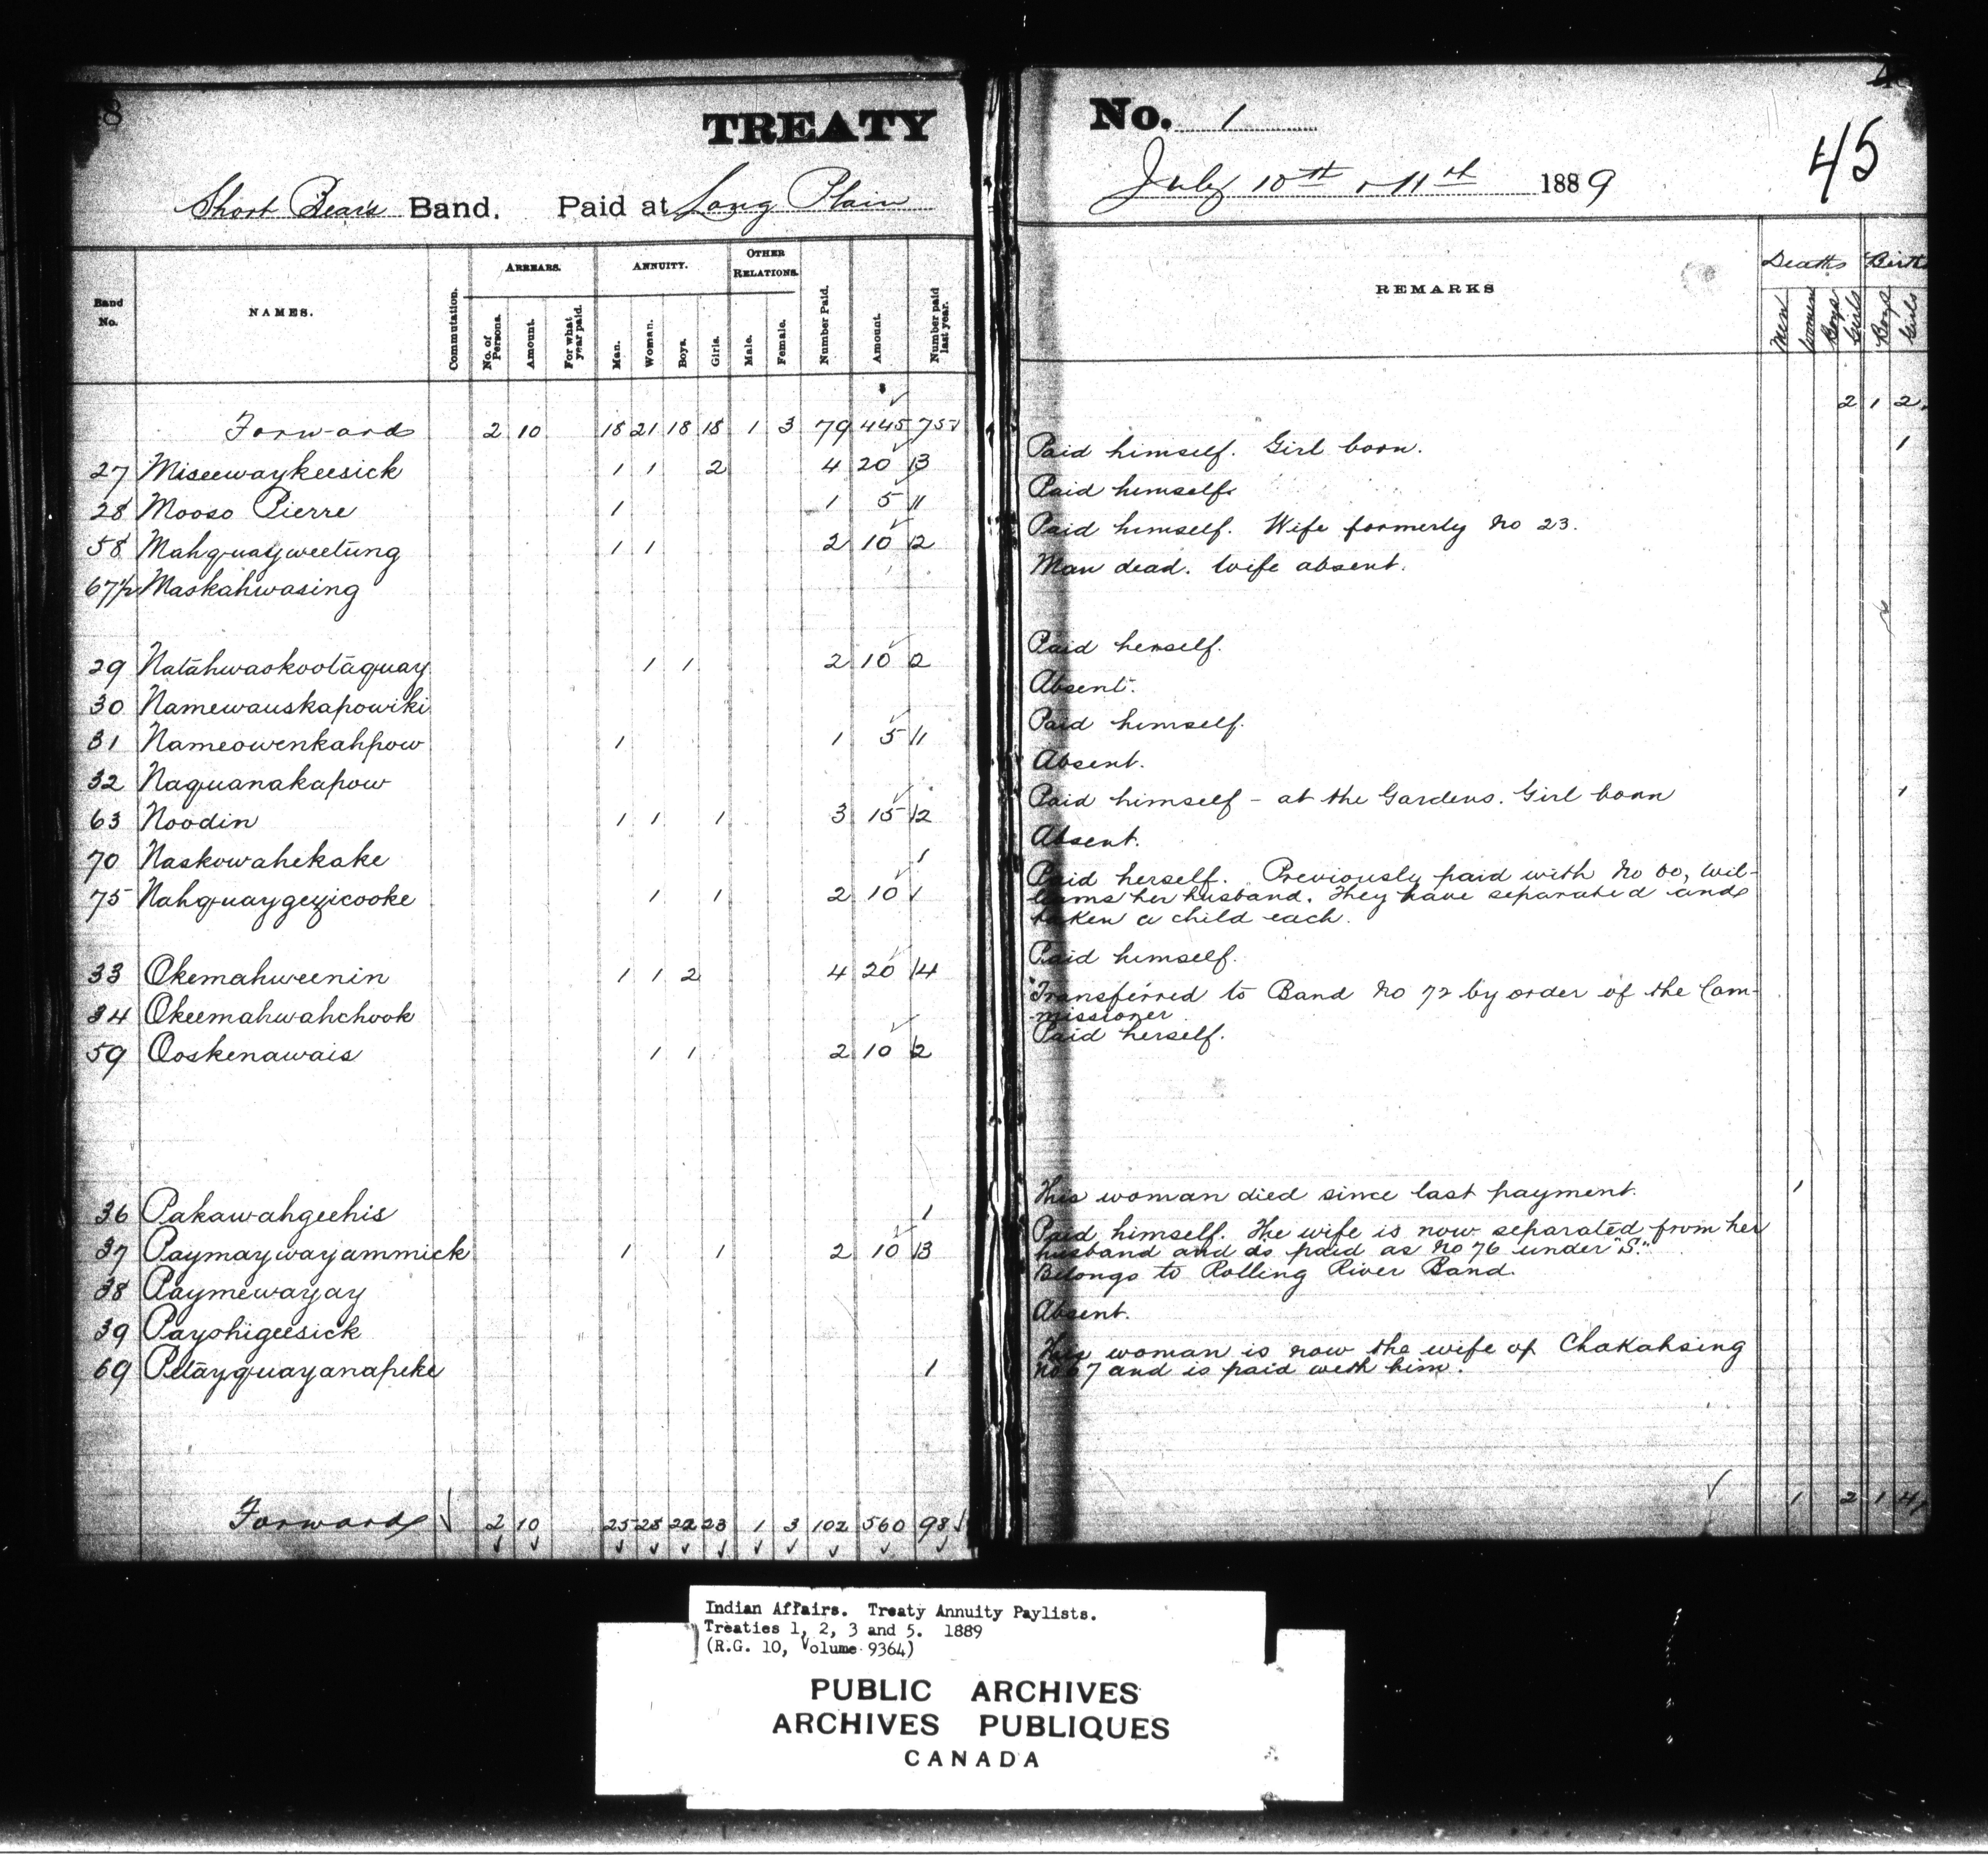 8
TREATY No. 1
45
Short Bear's Band. Paid at Long Plain July 10th & 11th 1889
Band No. NAMES. Commutation. ARREARS. No. of Persons. Amount. For what year paid. ANNUITY. Man. Woman. Boys. Girls. OTHER RELATIONS. Male. Female. Number Paid. Amount. Number paid last year. REMARKS Deaths Men Women Boys Girls Births Boys Girls
$
Forward 2 10 18 21 18 18 1 3 79 445 75 2 1 2
27 Miseewaykeesick 1 1 2 4 20 3 Paid himself. Girl born. 1
28 Mooso Pierre 1 1 5 1 Paid himself.
58 Mahquayweetung 1 1 2 10 2 Paid himself. Wife formerly No 23.
67½ Maskahwasing Man dead. Wife absent.
29 Natāhwaokootāquay 1 1 2 10 2 Paid herself.
30 Namewauskapowiki Absent.
31 Nameowenkahpow 1 1 5 1 Paid himself.
32 Naquanakapow Absent.
63 Noodin 1 1 1 3 15 2 Paid himself - at the Gardens. Girl born 1
70 Naskowahekake 1 Absent.
75 Nahquaygezicooke 1 1 2 10 1 Paid herself. Previously paid with No 60, Wil-
liams her husband. They have separated and
taken a child each.
33 Okemahweenin 1 1 2 4 20 4 Paid himself.
34 Okeemahwahchook Transferred to Band No 72 by order of the Com-
missioner.
59 Ooskenawais 1 1 2 10 2 Paid herself.
36 Pakawahgeehis 1 This woman died since last payment. 1
37 Paymaywayammick 1 1 2 10 3 Paid himself. The wife is now separated from her
husband and is paid as No 76 under "S."
38 Paymewayay Belongs to Rolling River Band.
39 Payshigeesick Absent.
69 Petāyquayanapeke 1 This woman is now the wife of Chakahsing
No 67 and is paid with him.
Forward 2 10 25 28 22 23 1 3 102 560 98 1 2 1 4
Indian Affairs. Treaty Annuity Paylists.
Treaties 1, 2, 3 and 5. 1889
(R.G. 10, Volume 9364)
PUBLIC ARCHIVES
ARCHIVES PUBLIQUES
CANADA